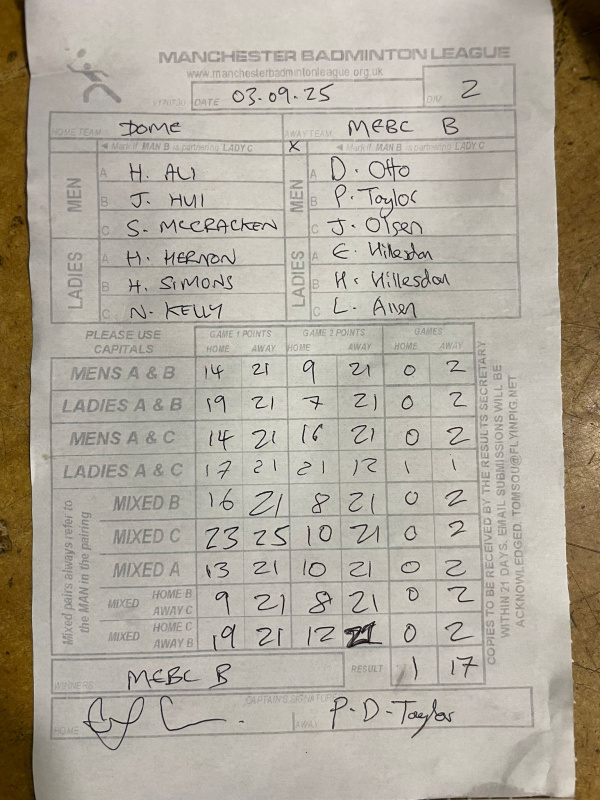 MANCHESTER BADMINTON LEAGUE
www.manchesterbadmintonleague.org.uk
DATE 03.09.25 DIV 2
HOME TEAM DOME AWAY TEAM MEBC B
◀ Mark if MAN B is partnering LADY C X ◀ Mark if MAN B is partnering LADY C
MEN A H. ALI MEN A D. Otto
B J. HUI B P. Taylor
C S. MCCRACKEN C J. Olsen
LADIES A H. HERNON LADIES A E. Hillesdon
B H. SIMONS B H. Hillesdon
C N. KELLY C L. Allen
PLEASE USE CAPITALS GAME 1 POINTS GAME 2 POINTS GAMES
HOME AWAY HOME AWAY HOME AWAY
MENS A & B 14 21 9 21 0 2
LADIES A & B 19 21 7 21 0 2
MENS A & C 14 21 16 21 0 2
LADIES A & C 17 21 21 12 1 1
Mixed pairs always refer to the MAN in the pairing
MIXED B 16 21 8 21 0 2
MIXED C 23 25 10 21 0 2
MIXED A 13 21 10 21 0 2
MIXED HOME B AWAY C 9 21 8 21 0 2
MIXED HOME C AWAY B 19 21 12 21 0 2
COPIES TO BE RECEIVED BY THE RESULTS SECRETARY
WITHIN 21 DAYS. EMAIL SUBMISSIONS WILL BE
ACKNOWLEDGED. TOMSOU@FLYINPIG.NET
WINNERS MEBC B RESULT 1 17
CAPTAIN'S SIGNATURE
HOME AWAY P-D-Taylor